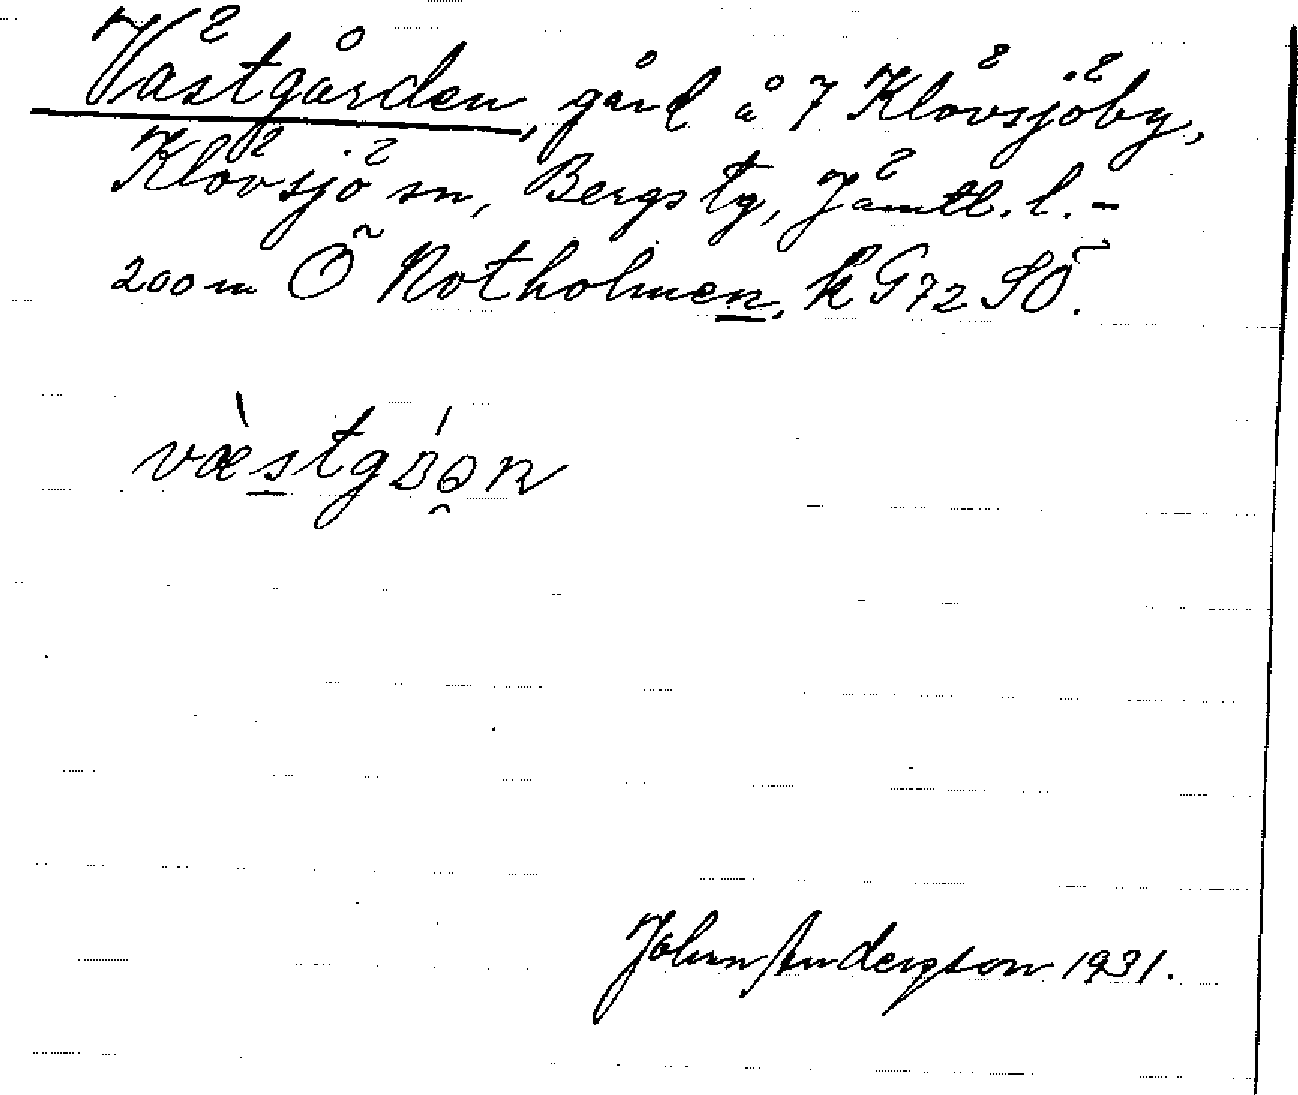 Västgården, gård å 7 Klövsjöby,
Klövsjö sn, Bergs tg, Jämtl. l. –
200 m Ö Notholmen, k G 72 SÖ.
Johan Anderson 1931.